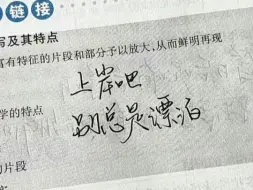 链接
写及其特点
富有特征的片段和部分予以放大,从而鲜明再现
上岸吧
学的特点
别总是漂泊
的片段